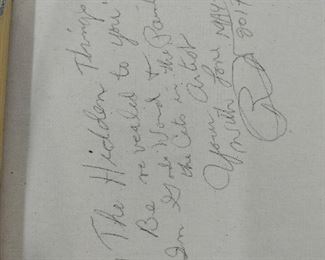 The Hidden Things
Be revealed to you
In God's Word &
the Arts in the
Your Artist
With Love